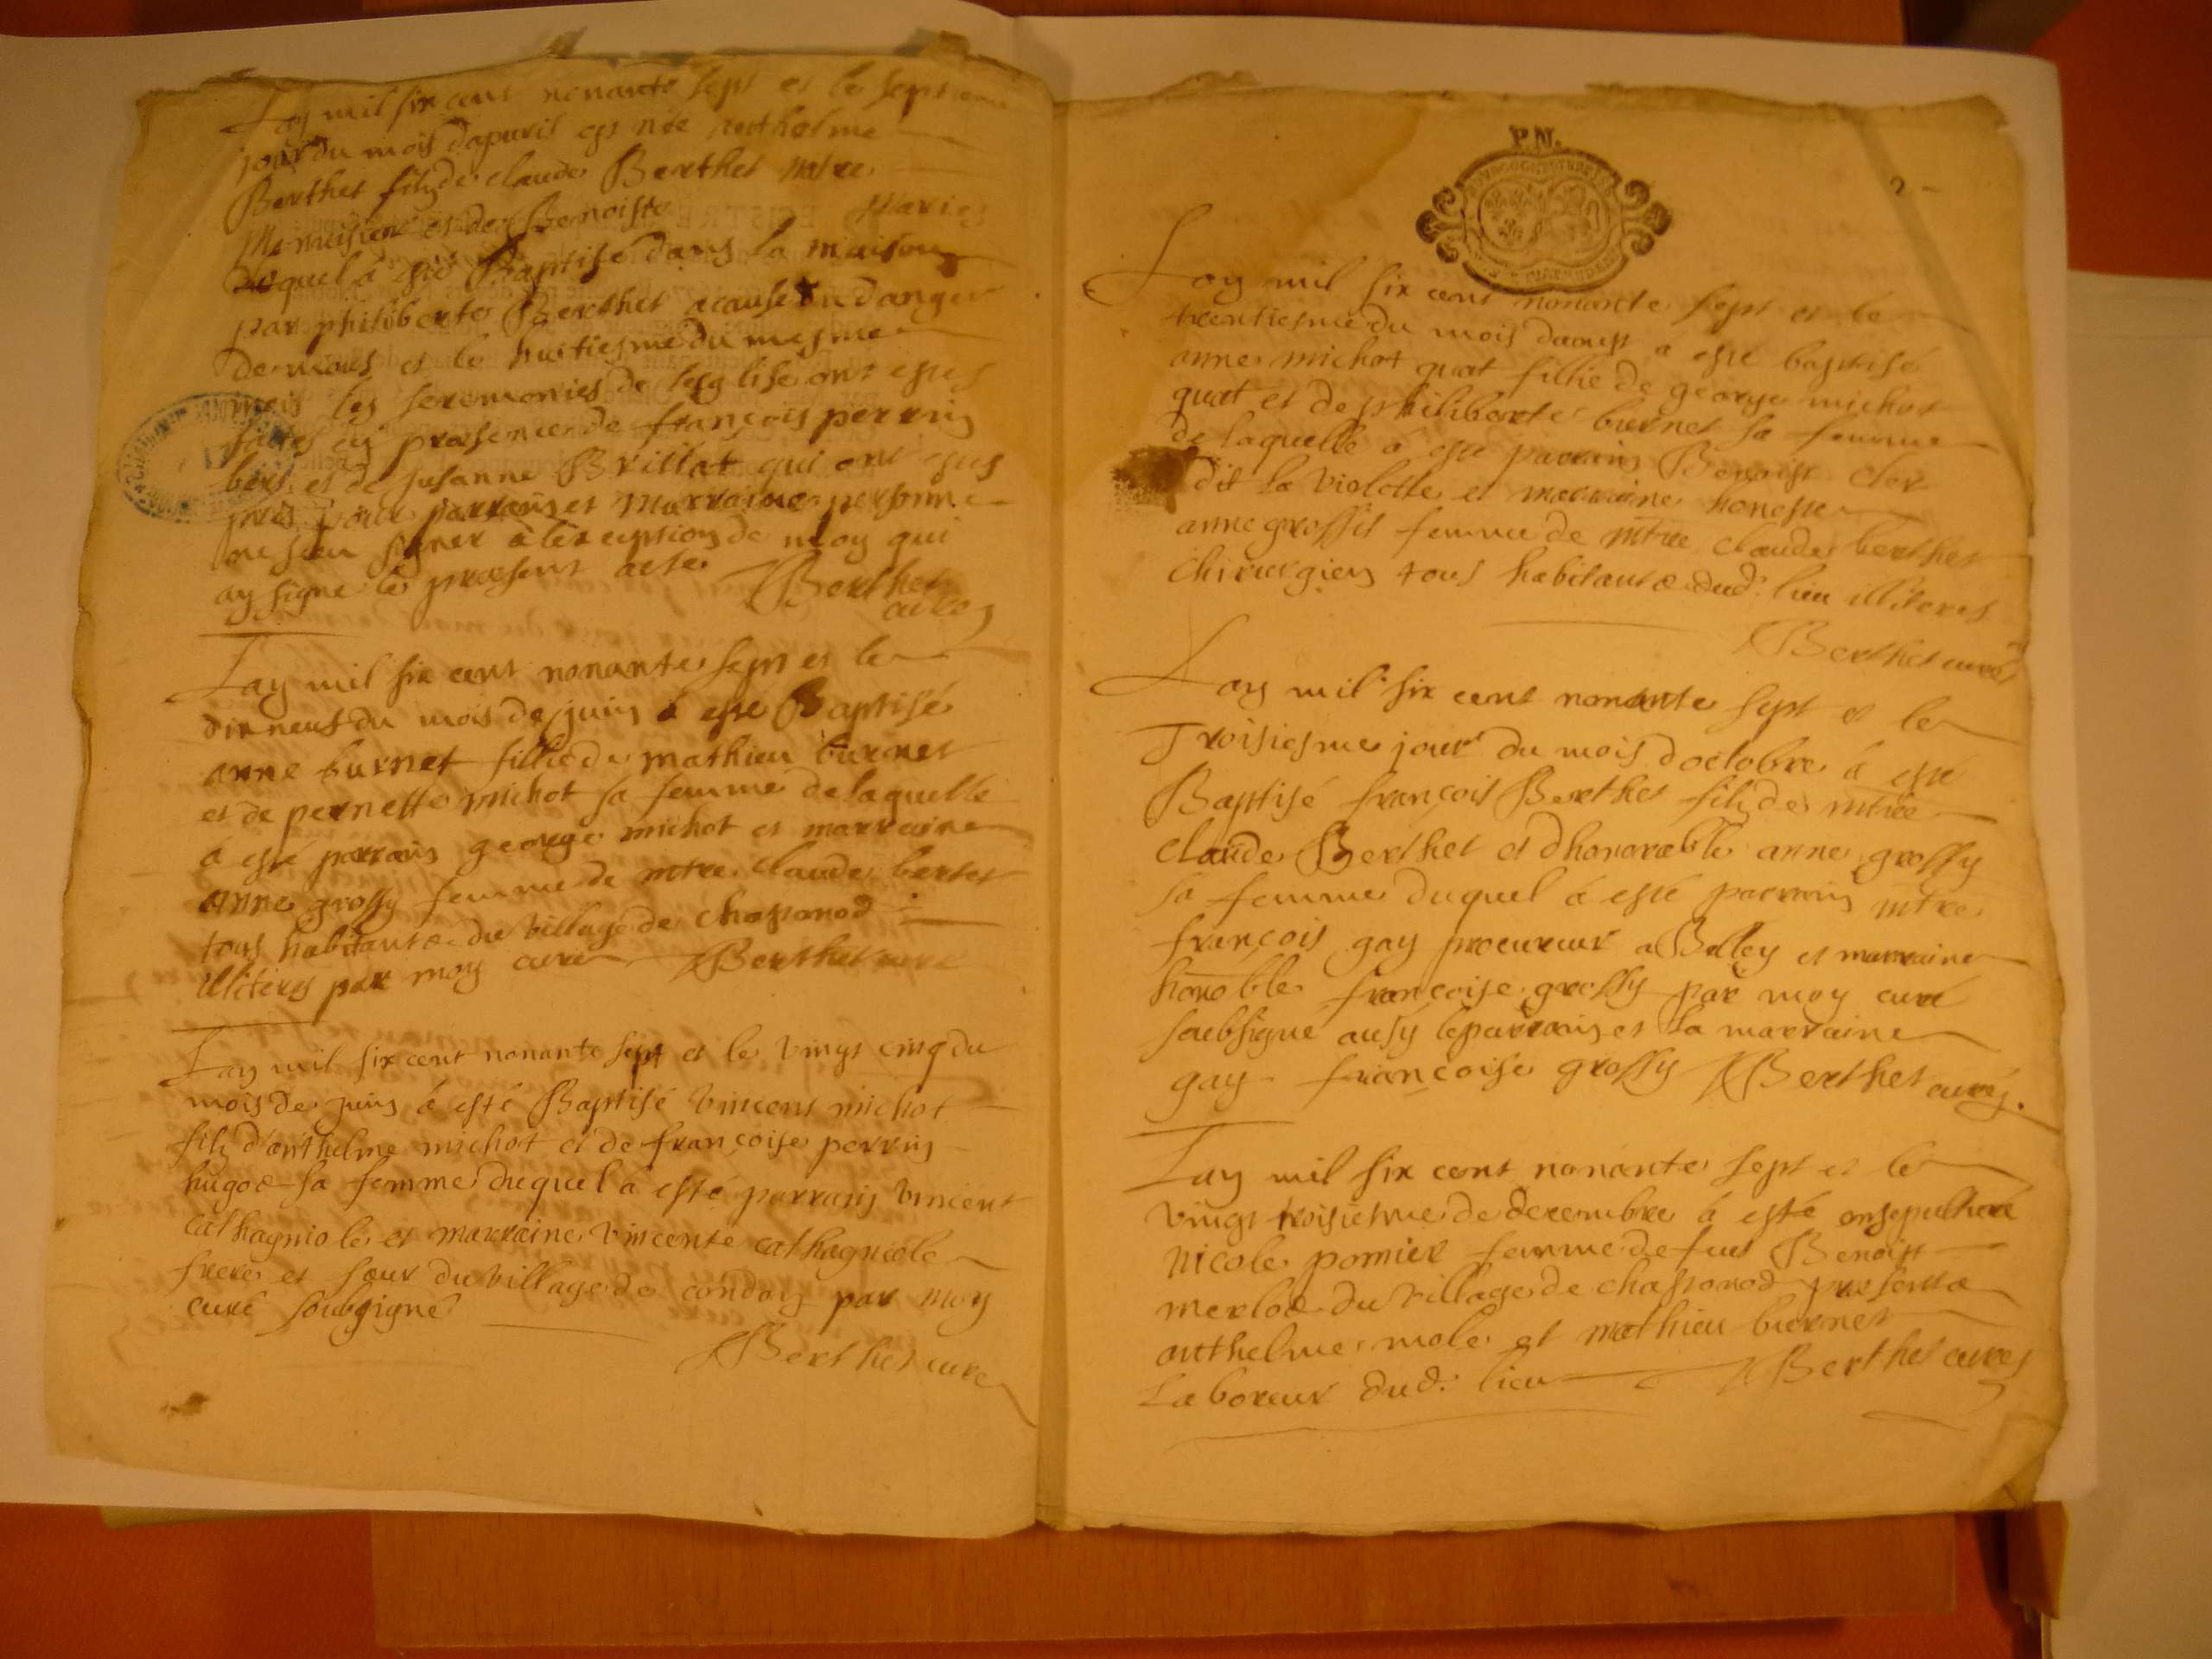 Lan mil six cent nonante sept et le septieme
jour du mois dapvril est née anthelme
Berthet filz de claude Berthet mtre
Menuisier et de Benoiste Maries
duquel à esté Baptisé dans la maison
par philiberte Berthet a cause du danger
de mort et le huitiesme du mesme
mois les seremonies de lesglise ont estes
faites en præsence de françois perrin
bers et de susanne Brillat qui ont estes
pris pour parrain et marraine personne
ne sceu signer à lexception de moy qui
ay signe le præsent acte Berthet
curé
Lan mil six cent nonante sept et le
dix neuf du mois de juin à esté Baptisé
anne burnet fillie de mathieu burnet
et de pernette michot sa femme de laquelle
à esté parrain george michot et marraine
anne grossy femme de mtre claude bertet
tous habitants du village de chosonod
illiteres par moy curé Berthet curé
Lan mil six cent nonante sept et le vingt cinq du
mois de juin à esté Baptisé vincent michot
filz d'anthelme michot et de françoise perrin
hugoz sa femme duquel à esté parrain vincent
cathagniole et marraine vincente cathagniole
frere et sœur du village de condon par moy
curé soubsigné
Berthet curé
P.N.
2
Lan mil six cent nonante sept et le
trentiesme du mois daoust a esté baptisé
anne michot quat fillie de george michot
quat et de philiberte burnet sa femme
de laquelle à esté parrain Benoist cler
dit la violette et marraine honeste
anne grossit femme de mtre claude berthet
chirurgien tous habitants dud. lieu illiteres
Berthet curé
Lan mil six cent nonante sept et le
Troisiesme jour du mois doctobre à esté
Baptisé françois Berthet filz de mtre
claude Berthet et dhonorable anne grossy
sa femme duquel à esté parrain mtre
françois gay procureur a Belley et marraine
honoble françoise grossy par moy curé
soubsigné ausy le parrain et la marraine
gay françoise grossy Berthet curé.
Lan mil six cent nonante sept et le
vingt troisiesme de decembre à esté ensepulturé
nicole pomier femme de feu Benoist
merloz du village de chosonod presents
anthelme mole et mathieu burnet
Laboreur dud. lieu Berthet curé